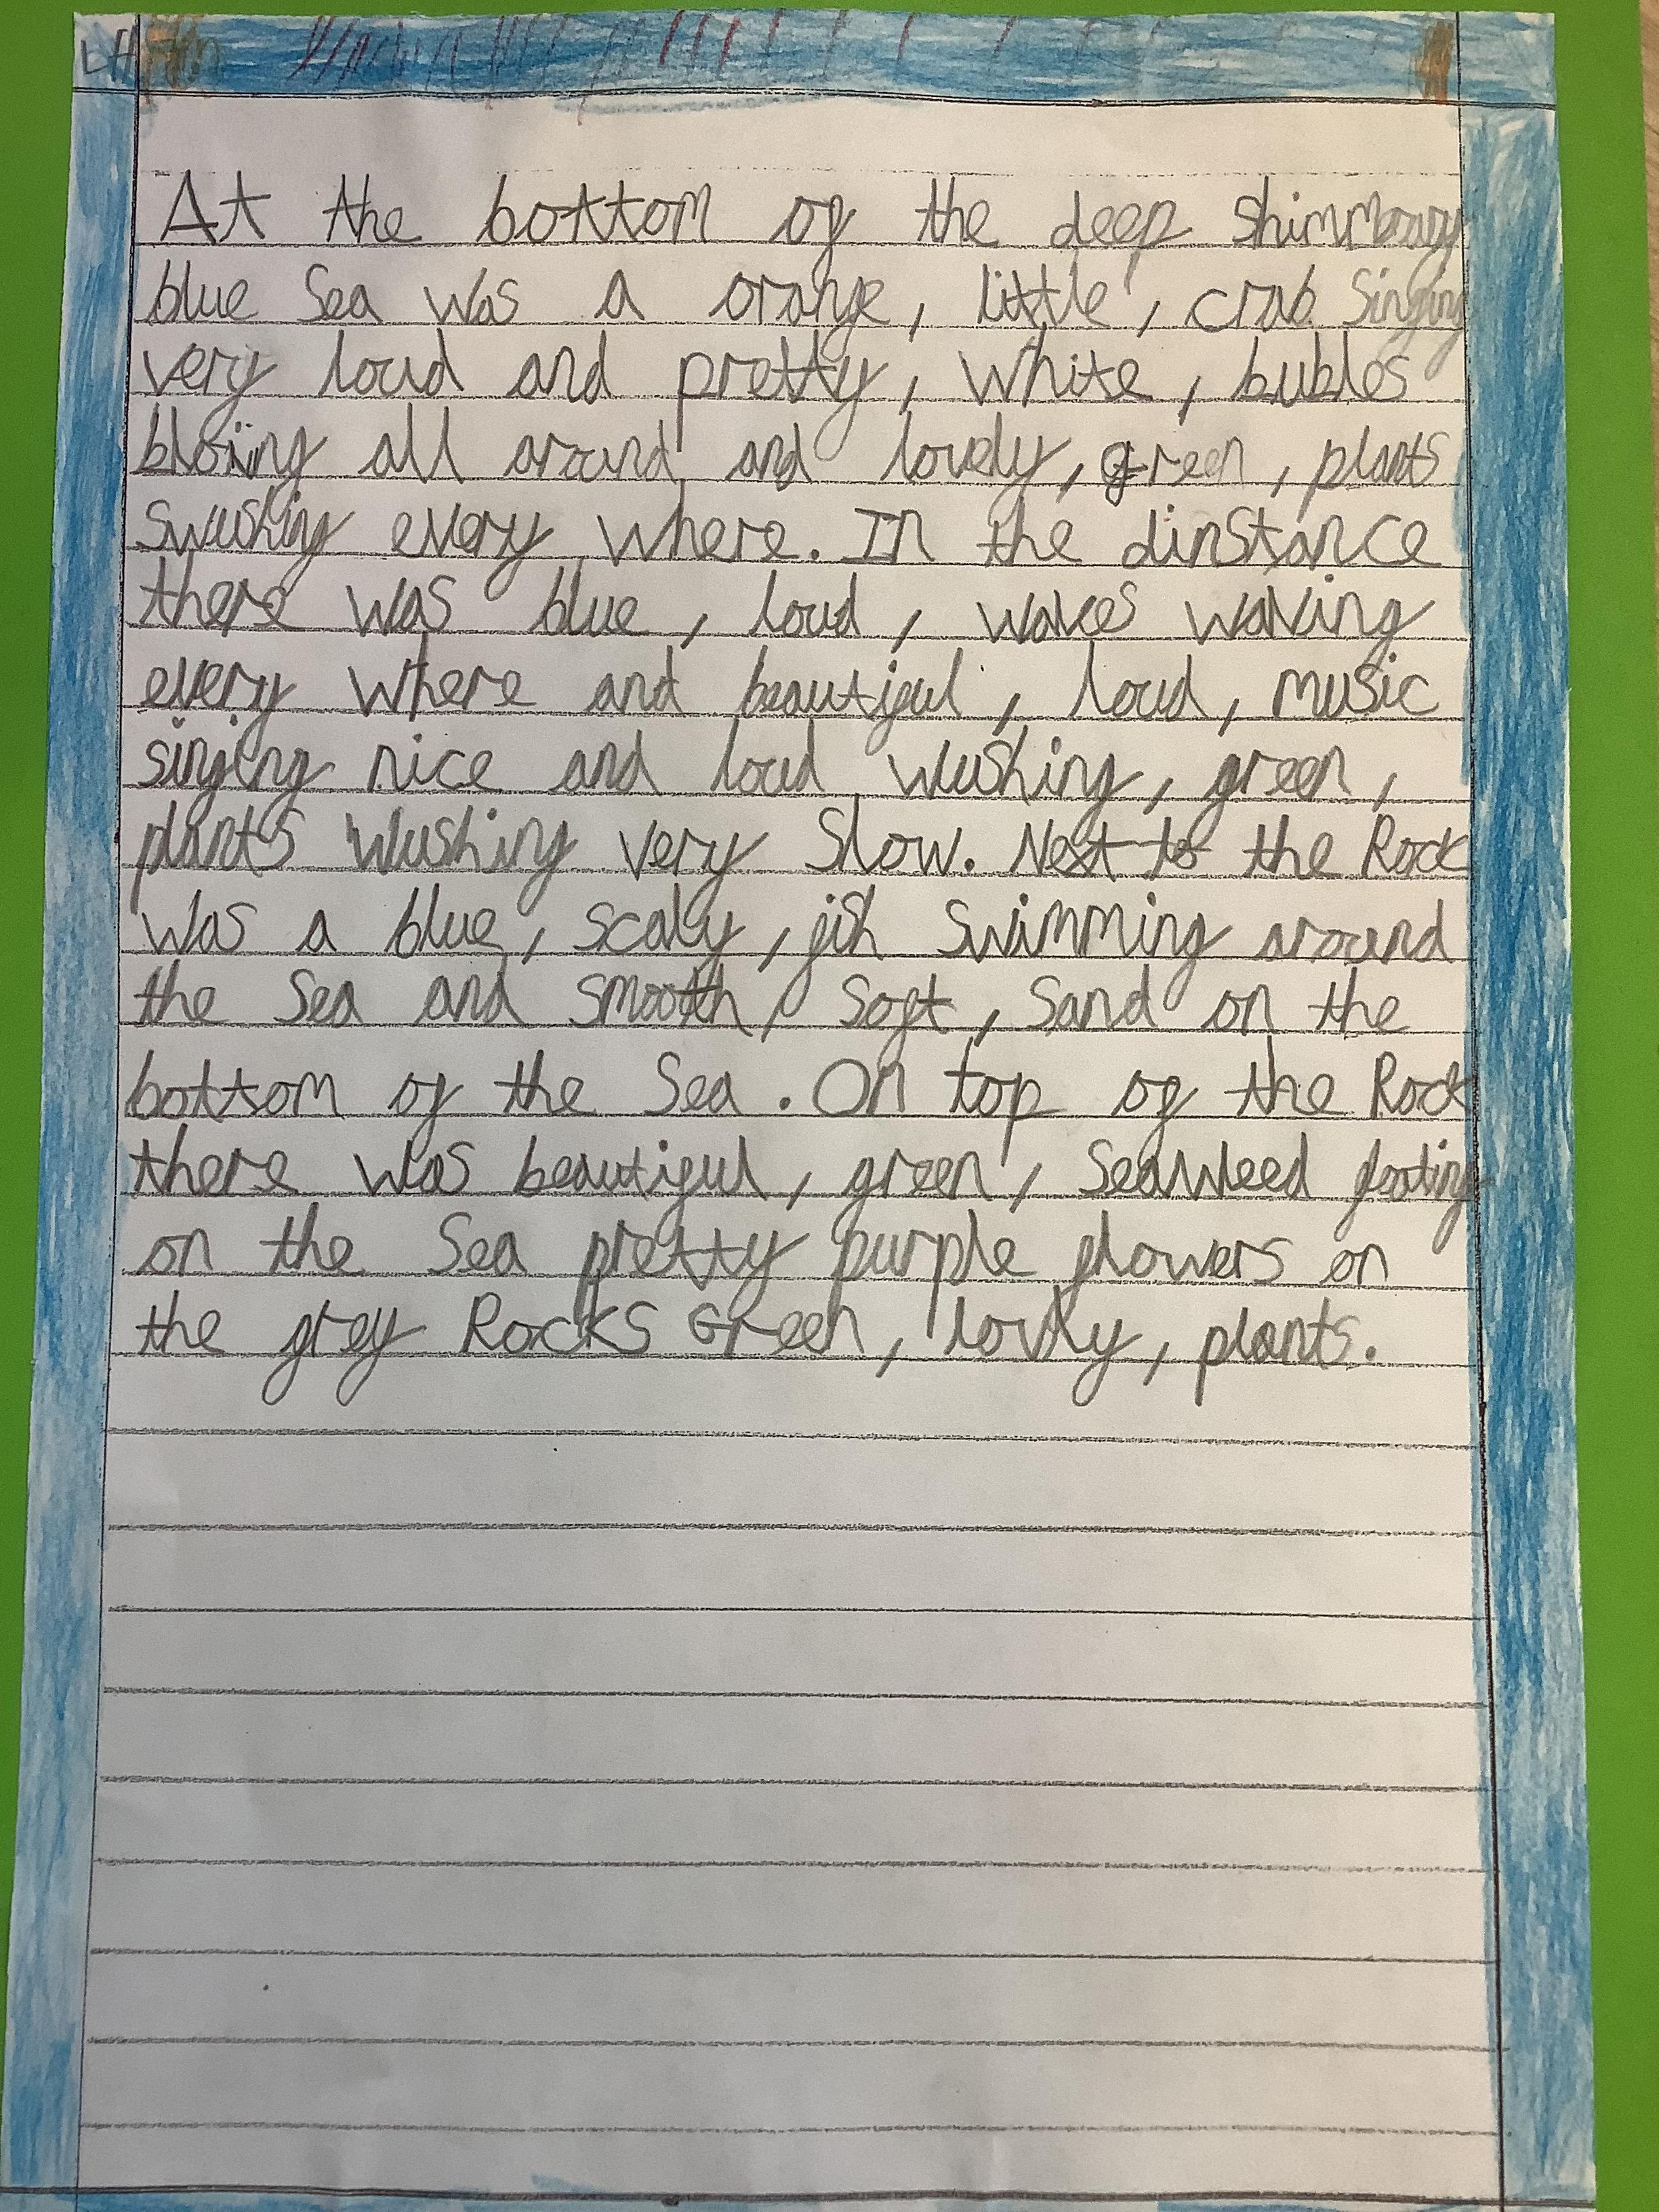 At the bottom of the deep
blue Sea was a orange, little, crab Singing
very loud and pretty, white, bubles
bloing all around and lovely, green, plants
Swushing every where. In the dinstance
there was blue, loud, waves waving
every where and beautiful, loud, music
singing nice and loud wushing, green,
plants wushing very Slow. Next to the Rock
was a blue, scaly, fish Swimming around
the Sea and smooth, Soft, Sand on the
bottom of the Sea. On top of the Rock
there was beautiful, green, Seaweed floating
on the Sea pretty purple flowers on
the grey Rocks Green, lovly, plants.